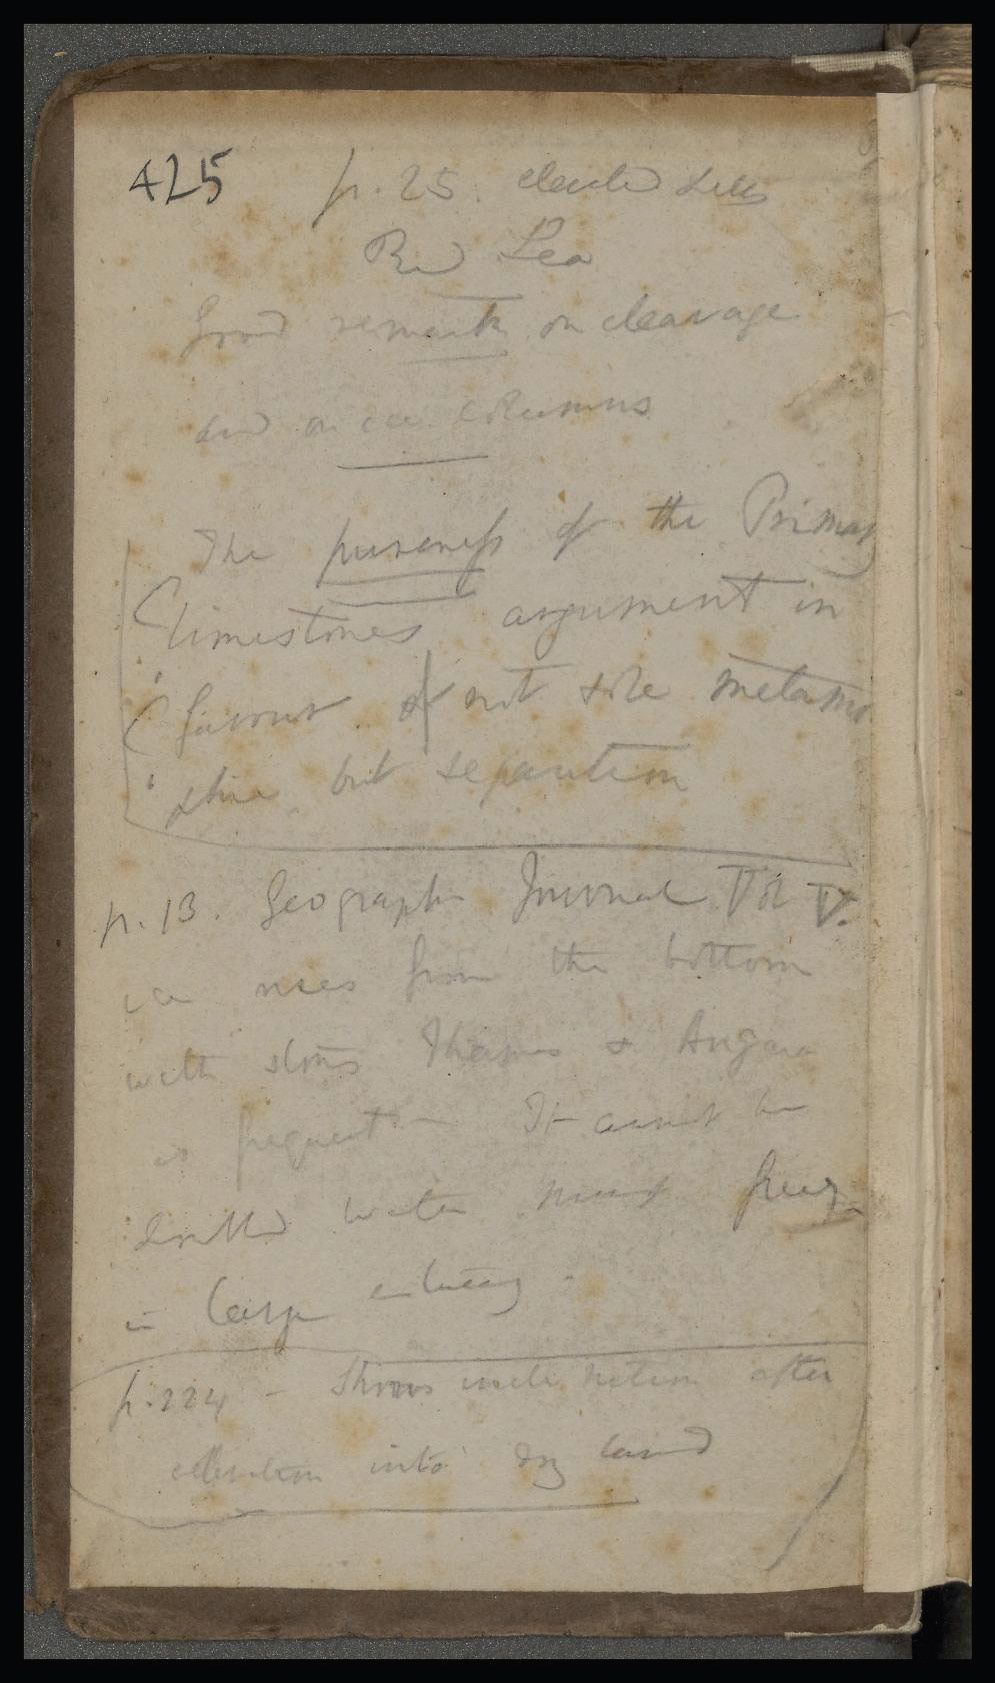 425 p. 25. elevated
Red Sea
Good remark on cleavage
and on ice columns
The pureness of the Primary
limestones argument in
favour of not sole metamor
phine but separation
p. 13. Geograph Journal Vol V.
ice rises from the bottom
with stones Thames & Angara
is frequent — It cannot be
drifted water must freeze
in large
p. 224 — Shows undulation after
elevation into dry land